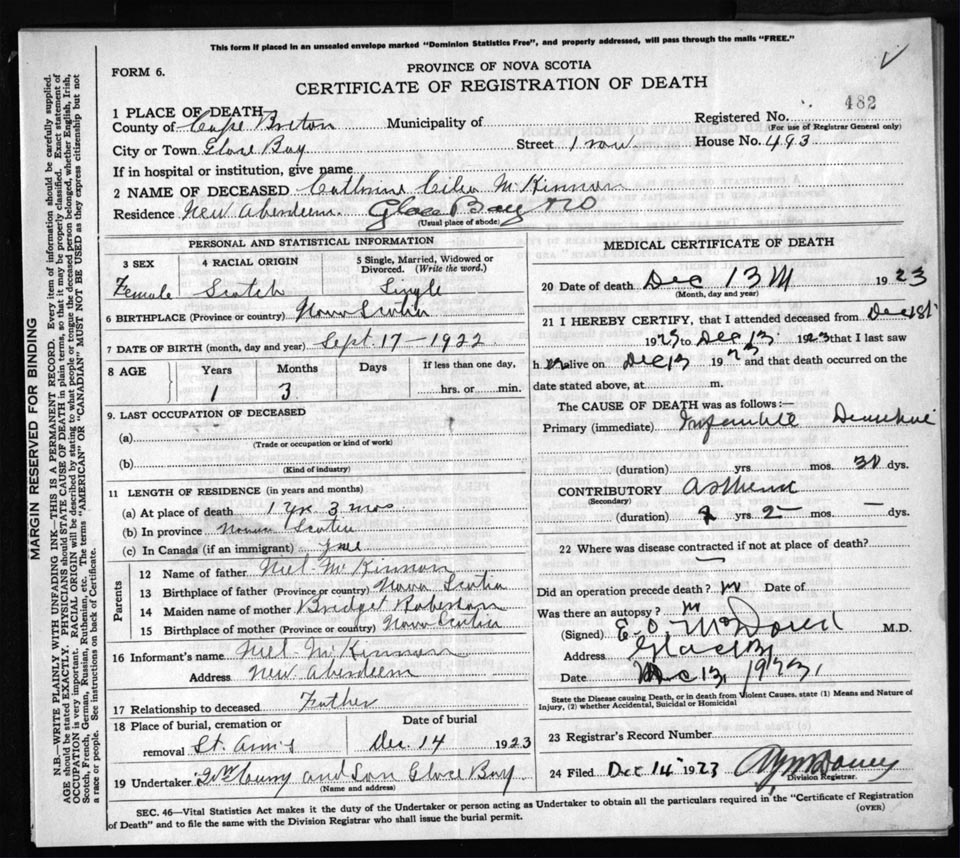 This form if placed in an unsealed envelope marked "Dominion Statistics Free", and properly addressed, will pass through the mails "FREE."
FORM 6.
PROVINCE OF NOVA SCOTIA
CERTIFICATE OF REGISTRATION OF DEATH
482
1 PLACE OF DEATH
County of Cape Breton Municipality of Registered No.
(For use of Registrar General only)
City or Town Glace Bay Street 1 row House No. 493
If in hospital or institution, give name
2 NAME OF DECEASED McKinnon
Residence New Aberdeen. Glace Bay
(Usual place of abode)
PERSONAL AND STATISTICAL INFORMATION
3 SEX 4 RACIAL ORIGIN 5 Single, Married, Widowed or Divorced. (Write the word.)
Female Scotch Single
6 BIRTHPLACE (Province or country) Nova Scotia
7 DATE OF BIRTH (month, day and year) Sept. 17-1922
8 AGE Years Months Days If less than one day,
1 3 hrs. or min.
9. LAST OCCUPATION OF DECEASED
(a)
(Trade or occupation or kind of work)
(b)
(Kind of industry)
11 LENGTH OF RESIDENCE (in years and months)
(a) At place of death 1 yr 3 mos
(b) In province Nova Scotia
(c) In Canada (if an immigrant)
Parents
12 Name of father Neil McKinnon
13 Birthplace of father (Province or country) Nova Scotia
14 Maiden name of mother Bridget
15 Birthplace of mother (Province or country) Nova Scotia
16 Informant's name Neil McKinnon
Address New Aberdeen
17 Relationship to deceased Father
18 Place of burial, cremation or Date of burial
removal St. Ann's Dec. 14 1923
19 Undertaker and Son Glace Bay
(Name and address)
MEDICAL CERTIFICATE OF DEATH
20 Date of death Dec 13 1923
(Month, day and year)
21 I HEREBY CERTIFY, that I attended deceased from Dec 1st
1923 to Dec 13 1923 that I last saw
h er alive on Dec 13 1923 and that death occurred on the
date stated above, at m.
The CAUSE OF DEATH was as follows:
Primary (immediate)
(duration) yrs. mos. 30 dys.
CONTRIBUTORY
(Secondary)
(duration) yrs. mos. — dys.
22 Where was disease contracted if not at place of death?
—
Did an operation precede death? no Date of
Was there an autopsy? no
(Signed) M.D.
Address Glace Bay
Date Dec 13, 1923,
State the Disease causing Death, or in death from Violent Causes, state (1) Means and Nature of
Injury, (2) whether Accidental, Suicidal or Homicidal
23 Registrar's Record Number
24 Filed Dec 14 1923
Division Registrar.
SEC. 46—Vital Statistics Act makes it the duty of the Undertaker or person acting as Undertaker to obtain all the particulars required in the "Certificate of Registration
of Death" and to file the same with the Division Registrar who shall issue the burial permit.
(OVER)
MARGIN RESERVED FOR BINDING
N.B.—WRITE PLAINLY WITH UNFADING INK—THIS IS A PERMANENT RECORD. Every item of information should be carefully supplied.
AGE should be stated EXACTLY. PHYSICIANS should STATE CAUSE OF DEATH in plain terms, so that it may be properly classified. Exact statement of
OCCUPATION is very important. RACIAL ORIGIN will be described by stating to what people or tongue the deceased person belonged, whether English, Irish,
Scotch, French, German, Russian, Ruthenian, etc. The terms "AMERICAN" or "CANADIAN" MUST NOT BE USED as they express citizenship but not
a race or people. See instructions on back of Certificate.